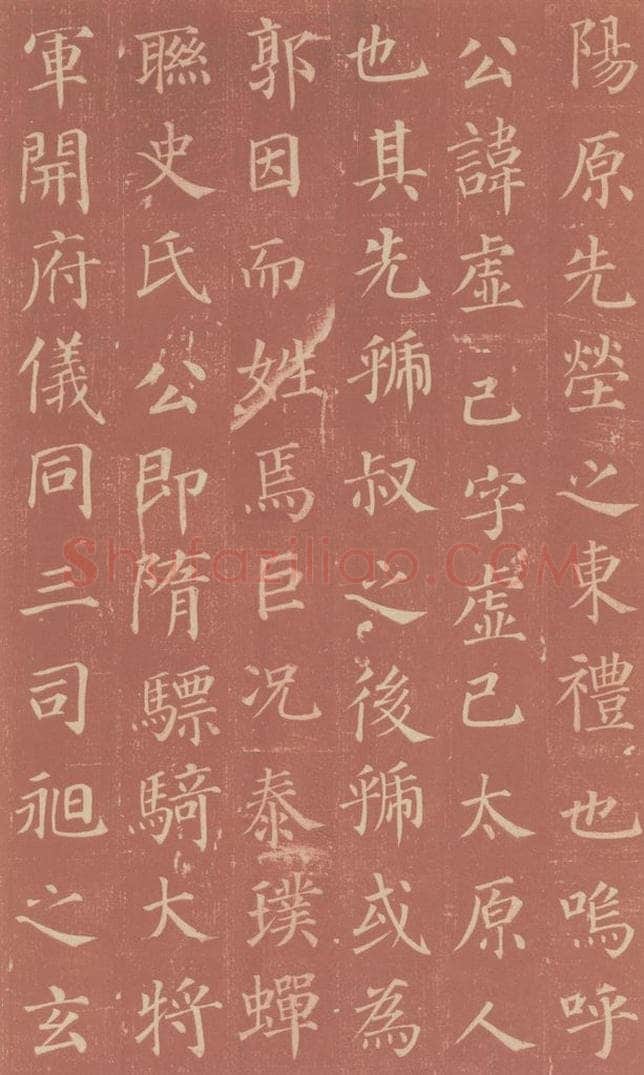 陽原先塋之東禮也嗚呼
公諱虛己字虛己太原人
也其先虢叔之後虢或為
郭因而姓焉巨況泰璞蟬
聯史氏公即隋驃騎大將
軍開府儀同三司昶之玄
Shufaziliao.COM